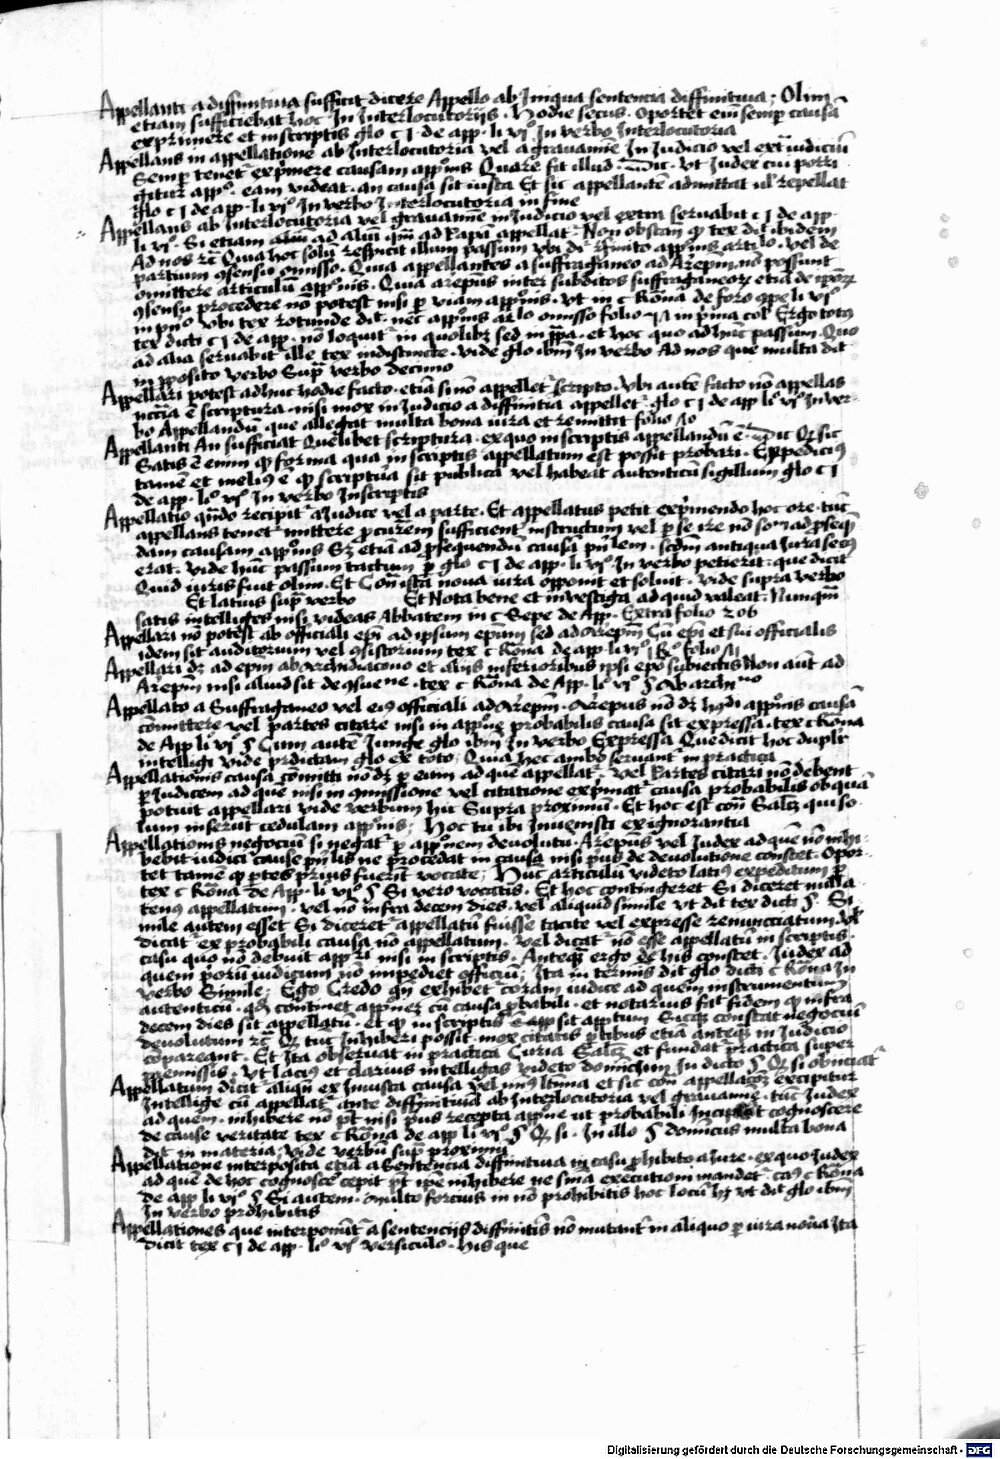 Appellanti a diffinitiua sufficit dicere Appello ab Iniqua sentencia diffinitiua; Olim
etiam sufficiebat hoc In Interlocutorijs. Hodie secus. Oportet eim semp causā
exprimere et inscriptis glo c j. de app. li vjº. In verbo Interlocutoria
Appellans in appellatione ab Interlocutoria vel a grauamine In Judicio vel extra iudiciū
Semp tenet exprimere causam appōnis Quare fit illud Dic. Vt Judex cui porri
gitur appº. eam videat. an causa sit iusta Et sic appellantē admittat ul repellat
glo c j de app. li vjº. In verbo Interlocutoria in fine
Appellans ab Interlocutoria vel grauamine in Judicio vel extra seruabit c j de app.
li vjº. Si etiam ad aliū qm ad Papā appellat. Non obstan qp tex dit ibidem
Ad nos rc Quia hoc solū respicit illum passum vbi appōnis vel de
partium cōsensu omisso. Quia appellantes a suffraganeo ad Arepm nō possunt
omittere articulū appōnis. Quia arepus inter subditos suffraganeorz etiā de ipōrz
cōsensu procedere nō potest nisi p viam appōnis. Vt in c Rōna de foro cōpe li vjº
in prīº vbi tex rotunde dit. nec appōnis omisso folio in prima col Ergo totus
tex dicti c j de app. nō loquit in quolibz sed in et hoc quo ad hūc passum. Quo
ad alia seruabit ille tex indistincte. vide glo ibm In verbo Ad nos que multa dit
in pposito verbo Supra verbo decimo
Appellari potest adhuc hodie facto. etiā si nō appellet scripto. Vbi autē facto nō appellas
ncc̄ria ē scriptura. nisi mox in Judicio a diffinitiā appellet. glo c j de app li vjº In ver
bo Appellandū. que allegat multa bona iura et remittit folio
Appellanti An sufficiat Quelibet scriptura. exquo inscriptis appellandū ē. Dic Qz sic
Satis ē enim qp forma qua inscriptis appellatum est possit probari. Expedicius
tamē et melius ē qp scriptura sit publica vel habeat autenticū sigillum glo c j
de app. liº vjº In verbo Inscriptis
Appellatio qn̄do recipit a Judice vel a parte. Et appellatus petit exprimendo hoc ore. tūc
appellans tenet mittere pcuratorem sufficient instructum vel p se ire nō solum ad pseqn
dam causam appōnis Sz etiā ad psequendū causā prīlem. scdm antiqua Jura secus
erat. vide hūc passum tactum p glo c j de app. li vjº. In verbo petierit. que dicit
Quid iuris fuit olim. Et Con ista noua iura opponit et soluit. Vide supra verbo
Et latius supra verbo Et Nota bene et inuestiga ad quid valeat. Nunquā
satis intelliges nisi videas Abbatem in c Sepe de App. Extra folio 206
Appellari nō potest ab officiali epi ad ipsum epum sed ad Arepm Cū epi et sui officialis
idem sit auditorium vel cōsistorium tex c Rōna de app. li vjº folio
Appellari dz ad epm ab Archidiacono et alijs inferioribus ipsi epo subiectis Non aut ad
Arepm nisi aliud sit de cōsuene. tex c Rōna de App. liº vjº § Ab archi no
Appellato a Suffraganeo vel eius officiali ad Arepm. Arepus nō dz appōnis causā
cōmittere vel partes citare nisi in appōne probabilis causa sit expressa. tex c Rōna
de App li vjº § Cum autē Iunge glo ibm In verbo Expressa Que dicit hoc duplr
intelligi vide prdictam glo ex toto; Quia hec ambo seruant in practica
Appellationis causa cōmitti nō dz p eum ad quē appellat. Vel Partes citari nō debent
p Judicem ad que nisi in cōmissione vel citatione exprimat causa probabilis ob quā
potuit appellari vide verbum hic Supra proximū. Et hoc est con qui so
lum inserūt cedulam appōnis; Hoc tu ibi Inuenisti ex ignorantia
Appellationis negociū si negat p appōnem deuolutū. Arepus vel Judex ad quē nō inhi
bebit iudici cause prilis ne procedat in causa nisi prius de deuolutione constet. Opor
tet tamē qp ptes prius fuerit vocate; Huc articulū videto latius expeditum p
tex c Rōna de App. li vjº § Si vero vocatis. Et hoc contingeret Si diceret nulla
tenus appellatum. vel nō infra decem dies. vel aliquid simile vt dit tex dicti §. Si
mile autem esset Si diceret appellatū fuisse tacite vel expresse renunciatum. Vl
dicat ex probabili causa nō appellatum. Vel dicat nō esse appellatū in scriptis
casu quo nō debuit appellari nisi in scriptis. Anteqz ergo de his constet. Judex ad
quem poriū iudicum nō impediet officiū; Ita in termis dit glo dicti c Rōna In
verbo Simile; Ego Credo qn exhibet coram iudice ad quem instrumentum
autenticū. qd continet appōnez cū causa pbabili. et notarius fat fidem qp infra
decem dies sit appellatū. et qp in scriptis sit apptum Sicqz constat negociū
deuolutum rc Qz tūc Inhiberi possit. mox citatis ptibus etiā anteqz in Judicio
copareant. Et Ita obseruat in practica Curia et fundat practica super
premissis. Vt lacius et clarius intelligas videto dominum In dicto § Qz si obiiciat
Appellatum dicit aliqn ex Iniusta causa vel minus ltima et sic con appellacōz excipitur
Intellige cū appellat ante diffinitiuā ab Interlocutoria vel grauamine. tūc Judex
ad quem. inhibere nō pt nisi prius recepta appōne vt probabili Incipiat cognoscere
de cause veritate tex c Rōna de app li vjº § Qz si. In illo § dominus multa bona
dit in materia; Vide verbū supra proximū
Appellatione interposita etiā a Sentencia diffinitiua in casu phibito a Jure. exquo Judex
ad quē de hoc cognoscē cepit pt ipse inhibere ne sīnia executioni mandet. casus c Rōna
de app li vjº § Si autem. multo forcius in nō prohibitis hoc locū hz vt dit glo ibm
In verbo prohibitis
Appellationes que interponūt a sentencijs diffinitis nō mutant in aliquo p iura noua Ita
dicit tex c j de app. liº vjº versiculo. his que
Digitalisierung gefördert durch die Deutsche Forschungsgemeinschaft - DFG